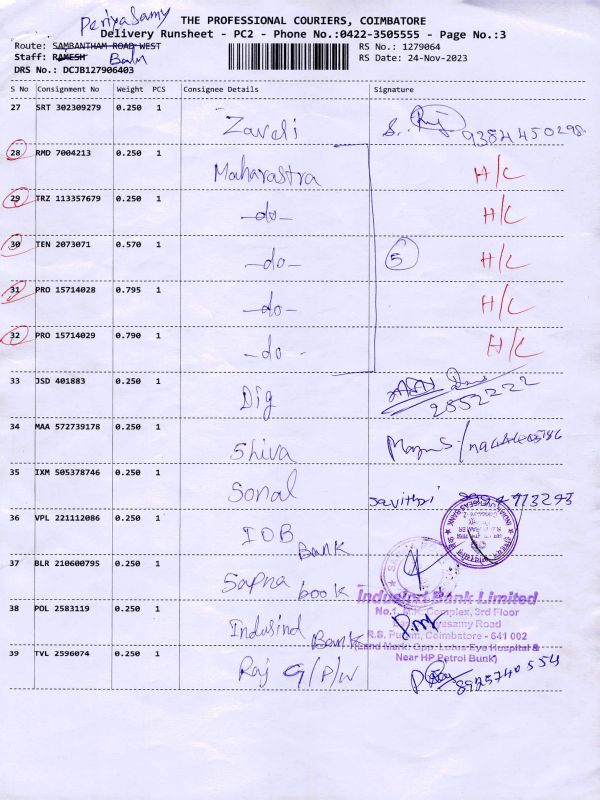 Periyasamy
THE PROFESSIONAL COURIERS, COIMBATORE
Delivery Runsheet - PC2 - Phone No.:0422-3505555 - Page No.:3
Route: SAMBANTHAM ROAD WEST
RS No.: 1279064
Staff: RAMESH Balu
RS Date: 24-Nov-2023
DRS No.: DCJB127906403
S No Consignment No Weight PCS Consignee Details Signature
27 SRT 302309279 0.250 1 Zaveri 9384450298
28 RMD 7004213 0.250 1 Maharastra H/C
29 TRZ 113357679 0.250 1 -do- H/C
30 TEN 2073071 0.570 1 -do- 5 H/C
31 PRO 15714028 0.795 1 -do- H/C
32 PRO 15714029 0.790 1 -do- H/C
33 JSD 401883 0.250 1 Dig 2852222
34 MAA 572739178 0.250 1 Shiva
35 IXM 505378746 0.250 1 Sonal Savithri
36 VPL 221112086 0.250 1 IOB Bank
37 BLR 210600795 0.250 1 Sapna book
38 POL 2583119 0.250 1 Indusind Bank
IndusInd Bank Limited
Complex, 3rd Floor
Road
R.S. Puram, Coimbatore - 641 002
(Land Mark: Opp. Lotus Eye Hospital &
Near HP Petrol Bunk)
39 TVL 2596074 0.250 1 Raj G/P/W 8925740554